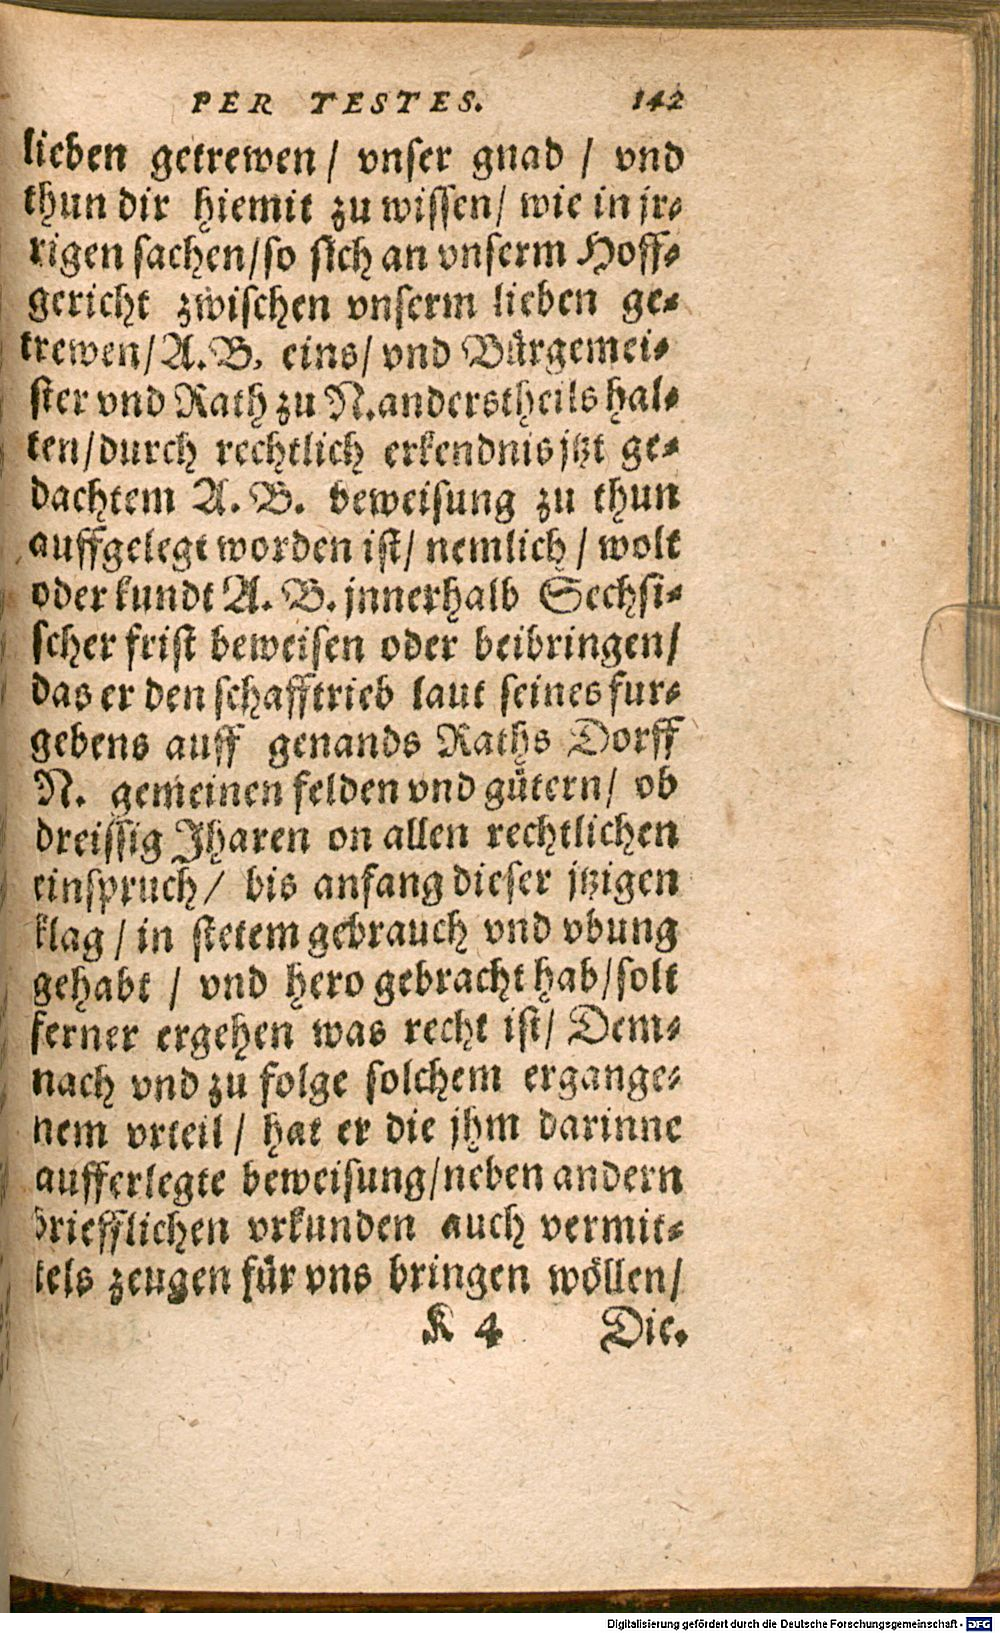 PER TESTES. 142
lieben getrewen / vnser gnad / vnd
thun dir hiemit zu wissen/ wie in jr-
rigen sachen/so sich an vnserm Hoff-
gericht zwischen vnserm lieben ge-
trewen/A.B. eins/ vnd Bürgemei-
ster vnd Rath zu N.anderstheils hal-
ten/durch rechtlich erkendnis jtzt ge-
dachtem A. B. beweisung zu thun
auffgelegt worden ist/ nemlich / wolt
oder kundt A. B. jnnerhalb Sechsi-
scher frist beweisen oder beibringen/
das er den schafftrieb laut seines fur-
gebens auff genands Raths Dorff
N. gemeinen felden vnd gütern/ ob
dreissig Jharen on allen rechtlichen
einspruch/ bis anfang dieser jtzigen
klag / in stetem gebrauch vnd vbung
gehabt / vnd hero gebracht hab/solt
ferner ergehen was recht ist/ Dem-
nach vnd zu folge solchem ergange-
nem vrteil / hat er die jhm darinne
aufferlegte beweisung/neben andern
briefflichen vrkunden auch vermit-
tels zeugen für vns bringen wöllen/
K 4 Die.
Digitalisierung gefördert durch die Deutsche Forschungsgemeinschaft - DFG